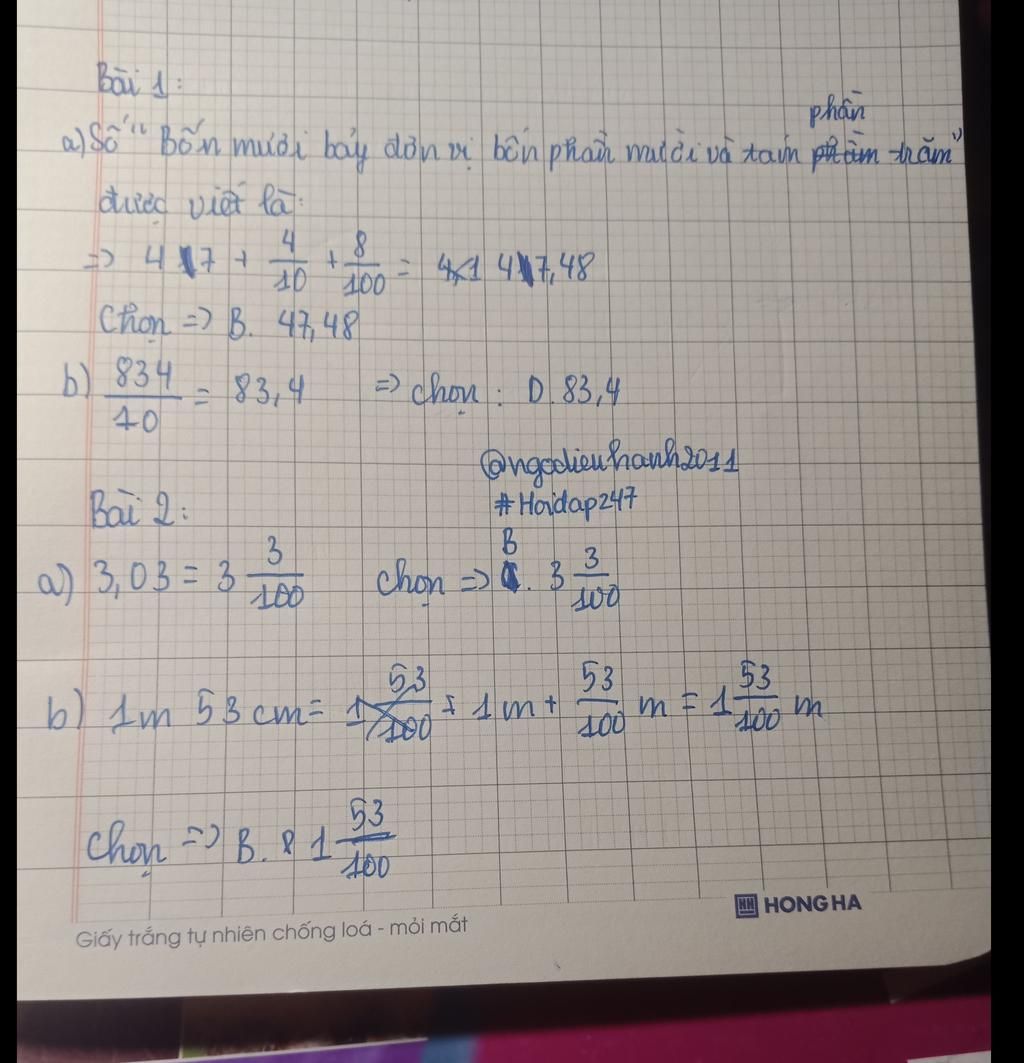 Bài 1:
phần
a) Số "Bốn mươi bảy đơn vị bốn phần mười và tám trăm"
được viết là:
=> 47 + 4/10 + 8/100 = 47,48
Chọn => B. 47,48
b) 834/10 = 83,4 => chọn: D. 83,4
@ngocdieuhanh2011
#Hoidap247
Bài 2:
B
a) 3,03 = 3 3/100 chọn => . 3 3/100
b) 1m 53 cm = 1 53/100 = 1m + 53/100 m = 1 53/100 m
Chọn => B. 1 53/100
HH HONG HA
Giấy trắng tự nhiên chống loá - mỏi mắt